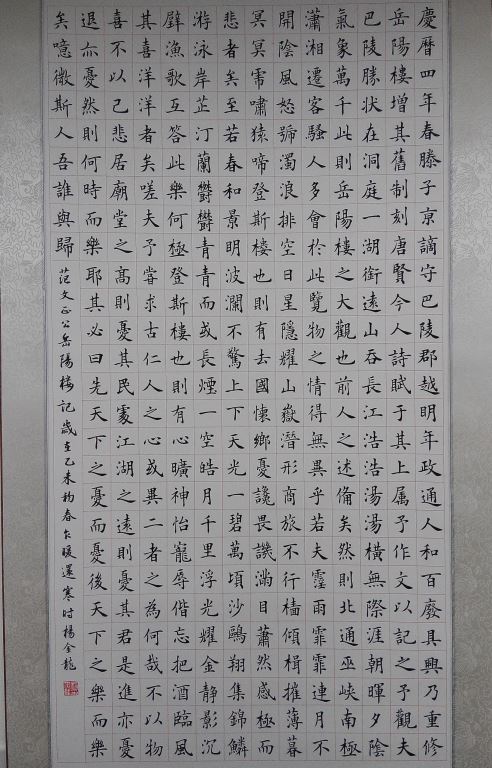 慶曆四年春滕子京謫守巴陵郡越明年政通人和百廢具興乃重修
岳陽樓增其舊制刻唐賢今人詩賦于其上属予作文以記之予觀夫
巴陵勝状在洞庭一湖銜遠山吞長江浩浩湯湯橫無際涯朝暉夕陰
氣象萬千此則岳陽樓之大觀也前人之述備矣然則北通巫峽南極
瀟湘遷客騷人多會於此覽物之情得無異乎若夫霪雨霏霏連月不
開陰風怒號濁浪排空日星隱耀山嶽潛形商旅不行檣傾楫摧薄暮
冥冥虎嘯猿啼登斯樓也則有去國懷鄉憂讒畏譏滿目蕭然感極而
悲者矣至若春和景明波瀾不驚上下天光一碧萬頃沙鷗翔集錦鱗
游泳岸芷汀蘭鬱鬱青青而或長煙一空皓月千里浮光耀金静影沉
璧漁歌互答此樂何極登斯樓也則有心曠神怡寵辱偕忘把酒臨風
其喜洋洋者矣嗟夫予嘗求古仁人之心或異二者之為何哉不以物
喜不以己悲居廟堂之高則憂其民處江湖之遠則憂其君是進亦憂
退亦憂然則何時而樂耶其必曰先天下之憂而憂後天下之樂而樂
矣噫微斯人吾誰與歸 范文正公岳陽樓記歲在乙未初春乍暖還寒时楊金龍